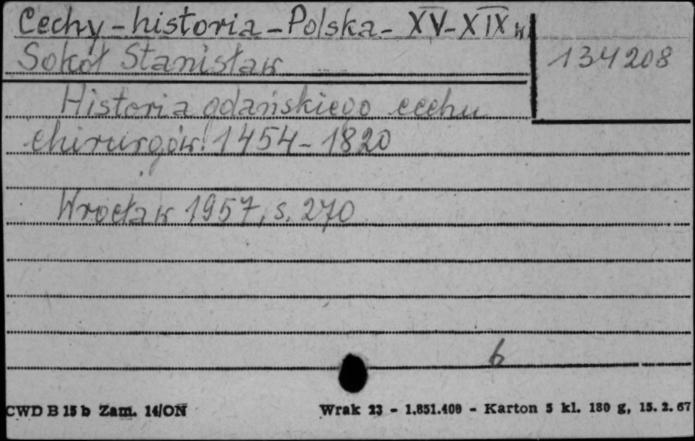 Cechy - historia - Polska - XV-XIX w
Sokół Stanisław
134208
Historia gdańskiego cechu
chirurgów. 1454 - 1820
Wrocław 1957, s. 270
b
CWD B 15 b Zam. 14/ON
Wrak 23 - 1.851.400 - Karton 5 kl. 180 g, 15. 2. 67